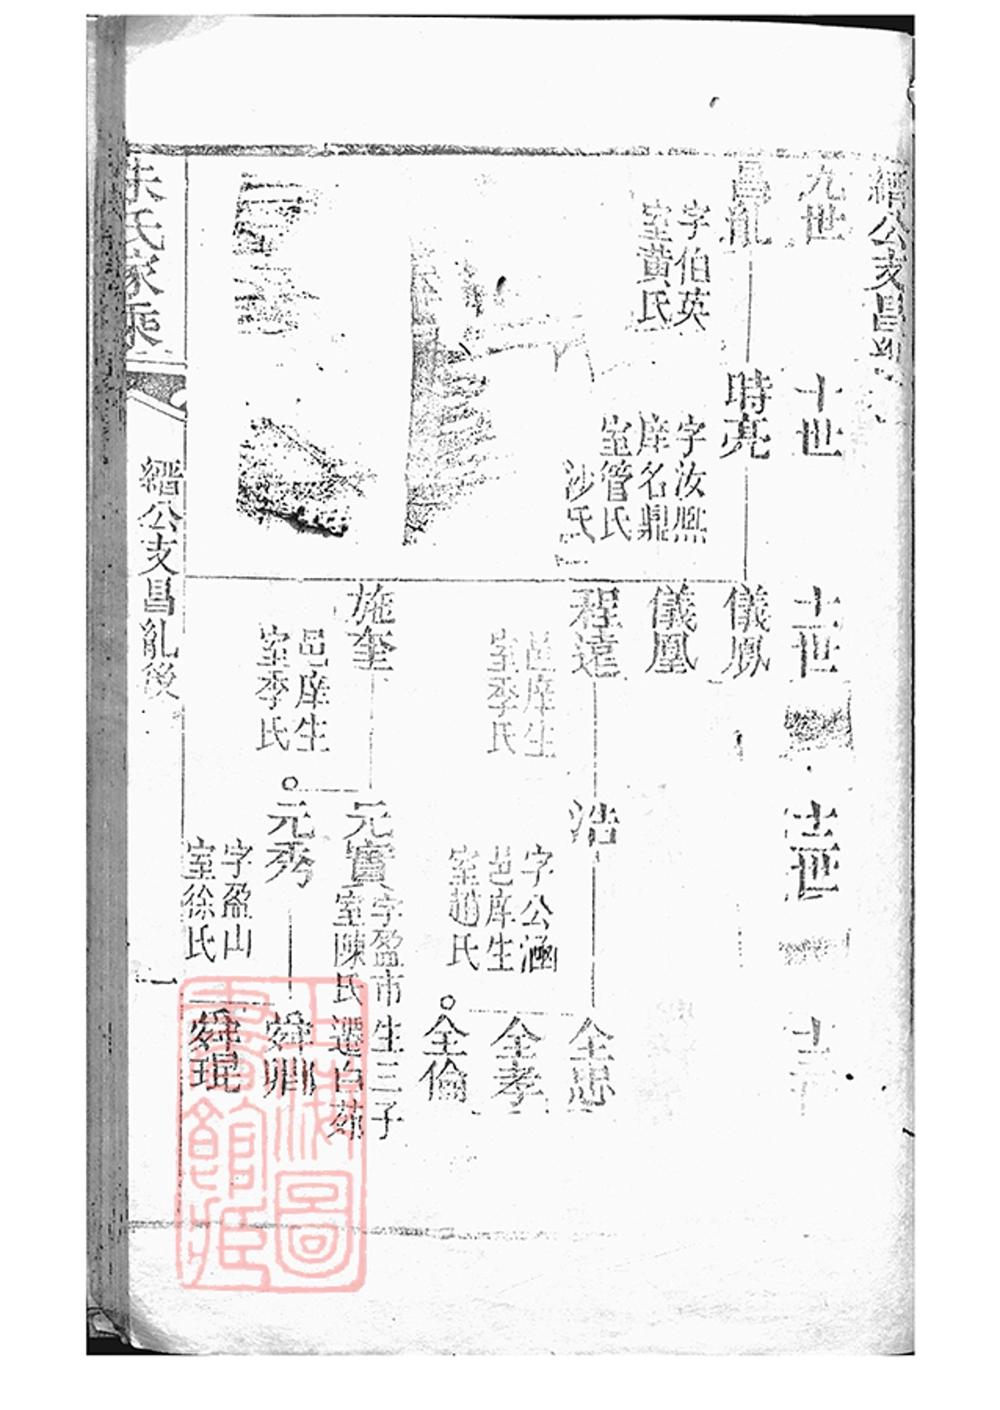 縉公支昌胤
九世
十世
十一世
十二世
十三
昌胤
字伯英
室黄氏
時亮
字汝熈
庠名鼎
室管氏
沙氏
儀鳳
儀凰
程遠
邑庠生
室季氏
浩
字公涵
邑庠生
室趙氏
全忠
全孝
全倫
施奎
邑庠生
室季氏
元寶
字盈市生三子
室陳氏遷白茆
元秀
字盈山
室徐氏
舜卿
舜琨
朱氏家乘
縉公支昌胤後
一
上海圖書館藏